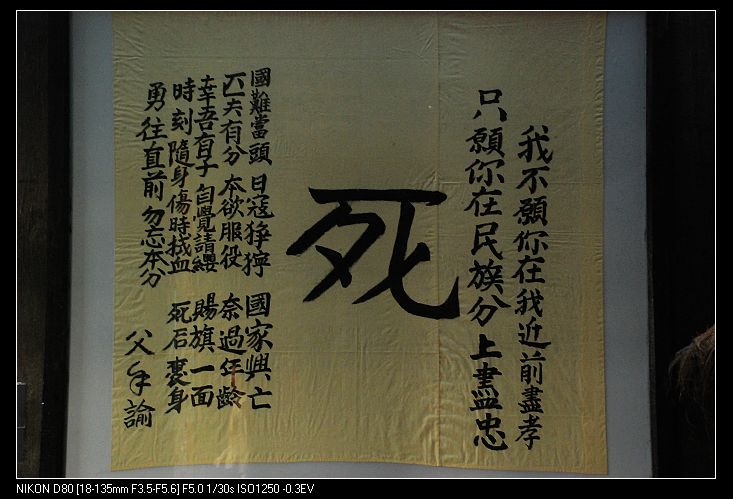 我不願你在我近前盡孝
只願你在民族分上盡忠
死
國難當頭 日寇猙獰 國家興亡
匹夫有分 本欲服役 奈過年齡
幸吾有子 自覺請纓 賜旗一面
時刻隨身 傷時拭血 死后裹身
勇往直前 勿忘本分
父手諭
NIKON D80 [18-135mm F3.5-F5.6] F5.0 1/30s ISO1250 -0.3EV